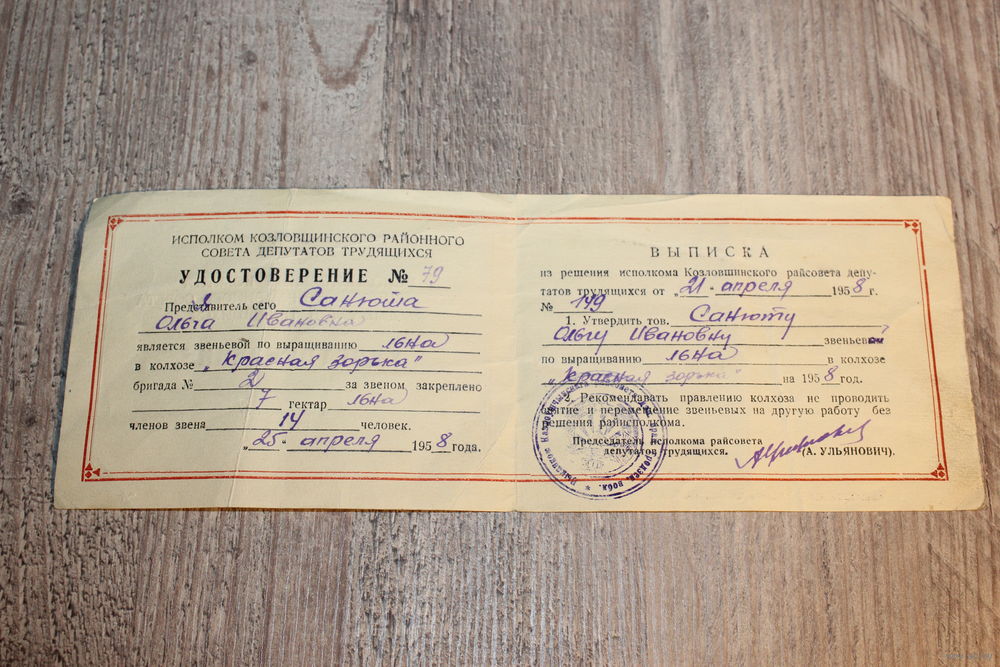 ИСПОЛКОМ КОЗЛОВЩИНСКОГО РАЙОННОГО
СОВЕТА ДЕПУТАТОВ ТРУДЯЩИХСЯ
УДОСТОВЕРЕНИЕ № 79
Представитель сего Санюта
Ольга Ивановна
является звеньевой по выращиванию льна
в колхозе „Красная зорька"
бригада № 2 за звеном закреплено
7 гектар льна
членов звена 14 человек.
„25" апреля 1958 года.
ВЫПИСКА
из решения исполкома Козловщинского райсовета депу-
татов трудящихся от „21" апреля 1958 г.
№ 149
1. Утвердить тов. Санюту
Ольгу Ивановну звеньевой
по выращиванию льна в колхозе
„Красная зорька" на 1958 год.
2. Рекомендавать правлению колхоза не проводить
снятие и перемещение звеньевых на другую работу без
решения райисполкома.
Председатель исполкома райсовета
депутатов трудящихся. (А. УЛЬЯНОВИЧ).